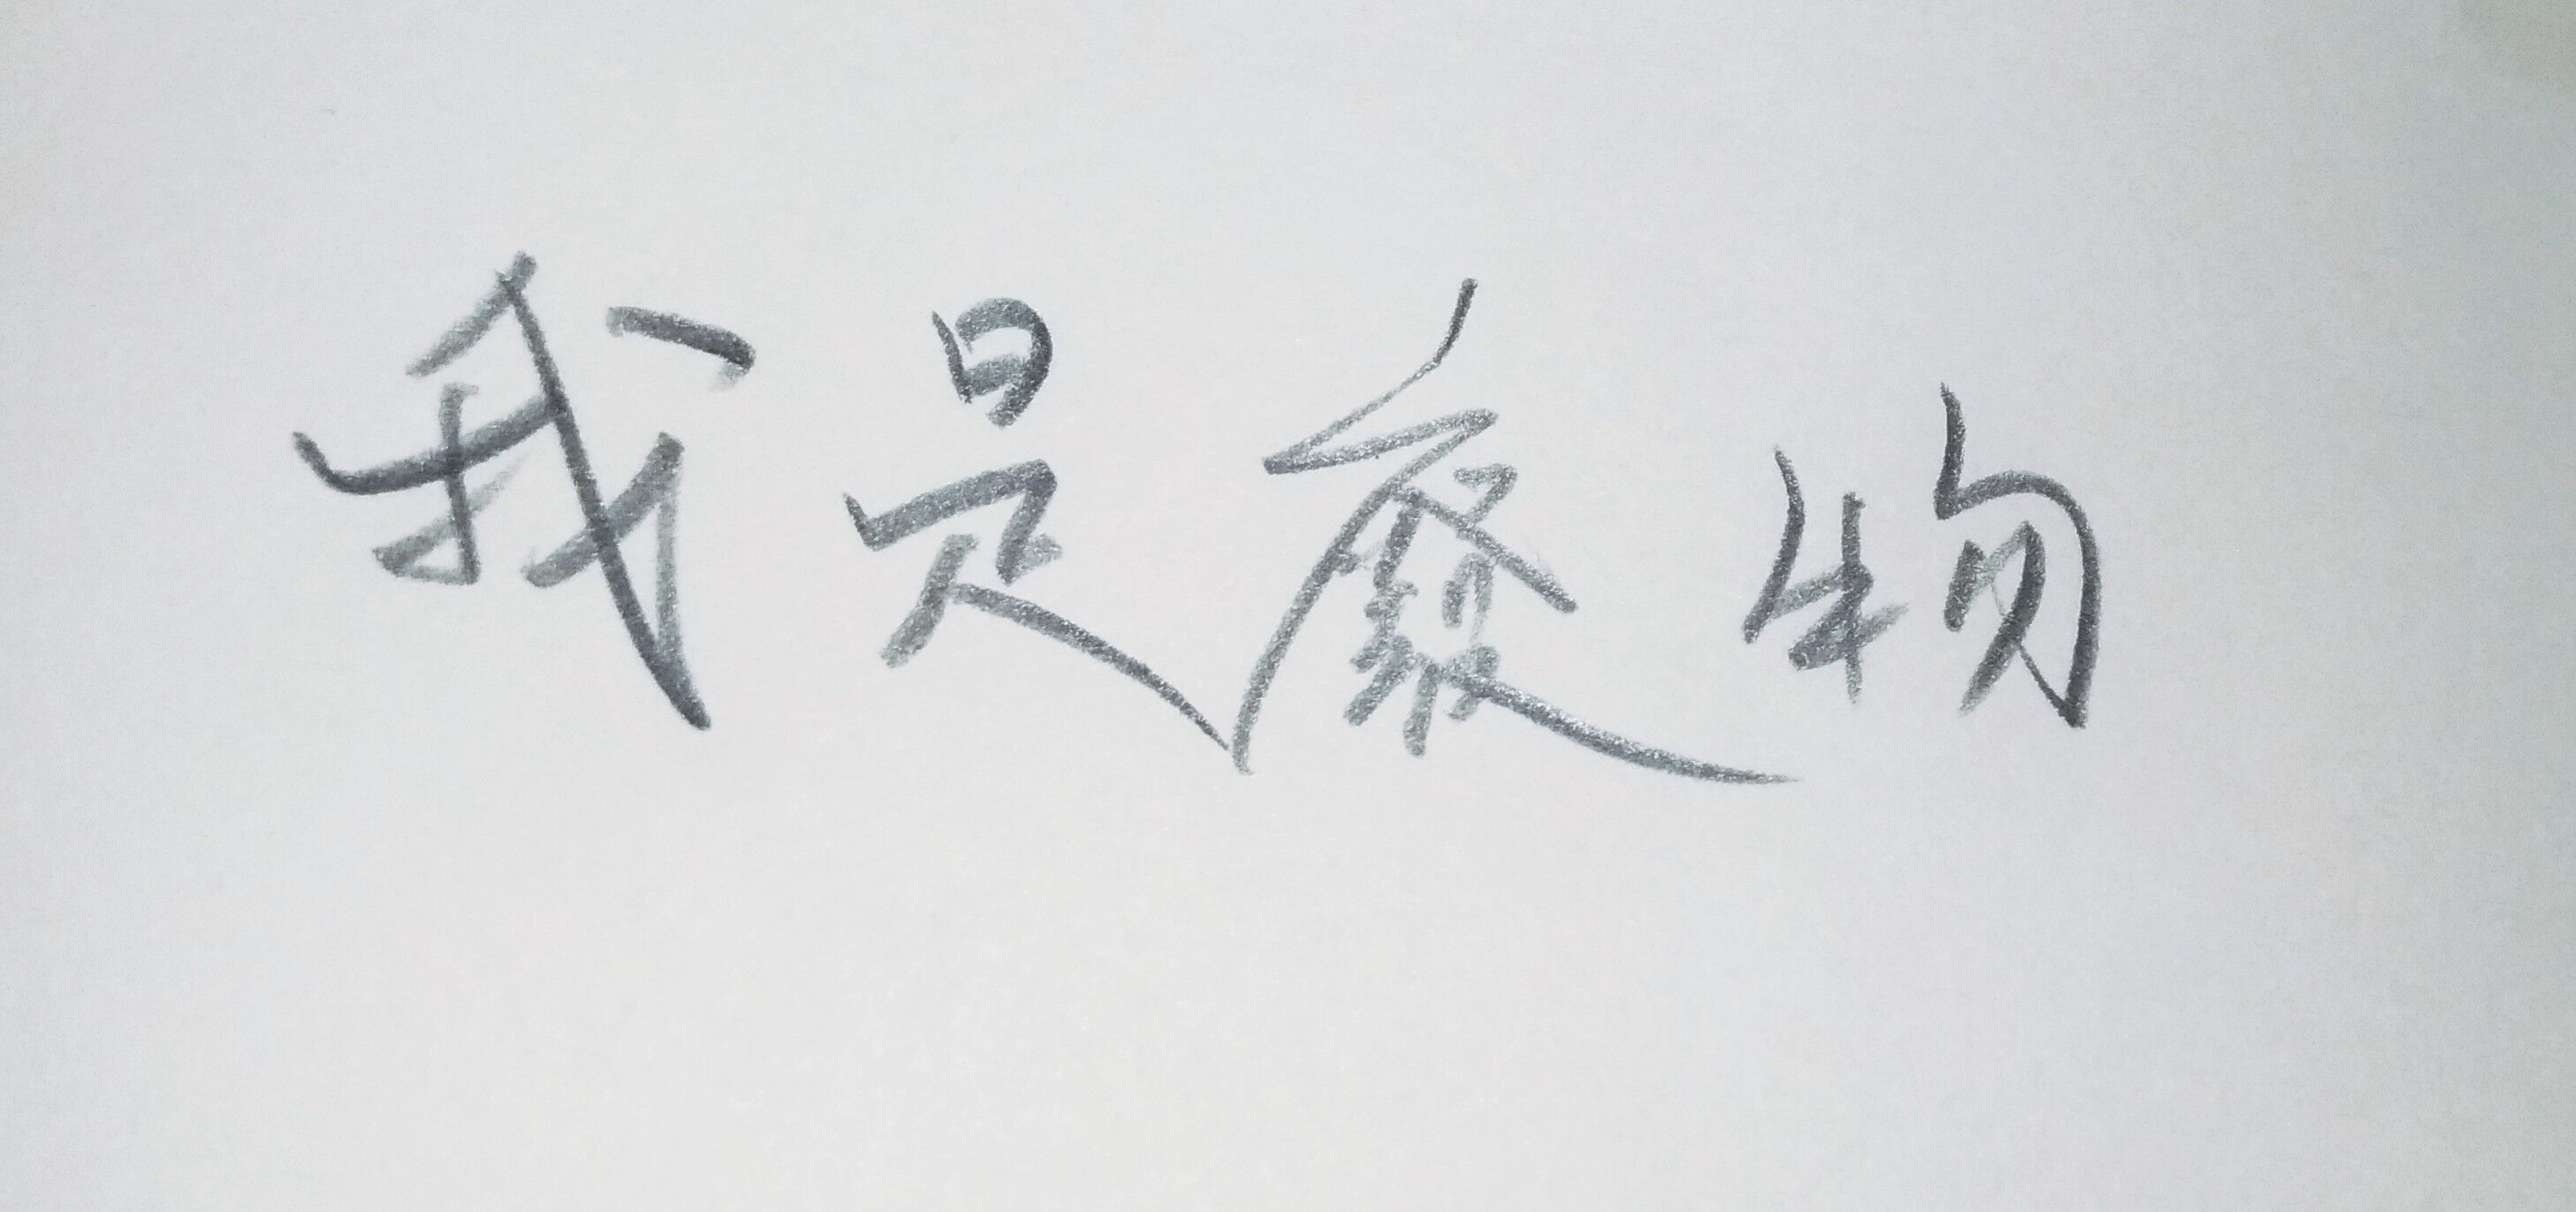 我是廢物